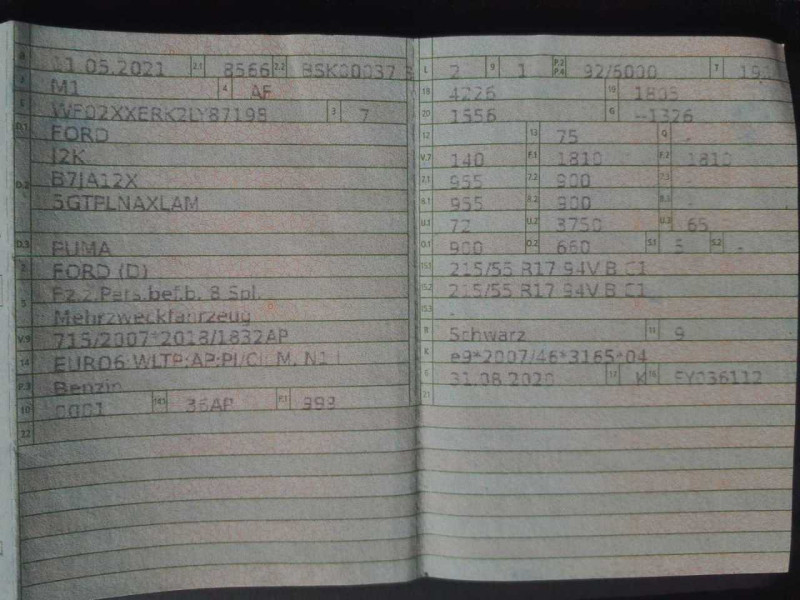 11.05.2021 2.1 8566 2.2 BSK00037
J M1 4 AF
E WF02XXERK2LY87198 3 7
D.1 FORD
J2K
D.2 B7JA12X
5GTPLNAXLAM
D.3 PUMA
2 FORD (D)
Fz.z.Pers.bef.b. 8 Spl.
5 Mehrzweckfahrzeug
V.9 715/2007*2018/1832AP
14 EURO6 WLTP;AP;PI/CI; M, N1 I
P.3 Benzin
10 0001 14.1 36AP P.1 999
22
L 2 9 1 P.2 P.4 92/6000 T
18 4226 19 1805
20 1556 G --1326
12 - 13 75 Q -
V.7 140 F.1 1810 F.2 1810
7.1 955 7.2 900 7.3 -
8.1 955 8.2 900 8.3 -
U.1 72 U.2 3750 U.3 65
O.1 900 O.2 660 S.1 5 S.2 -
15.1 215/55 R17 94V B C1
15.2 215/55 R17 94V B C1
15.3 -
R Schwarz 11 9
K e9*2007/46*3165*04
6 31.08.2020 17 K 16 FY036112
21